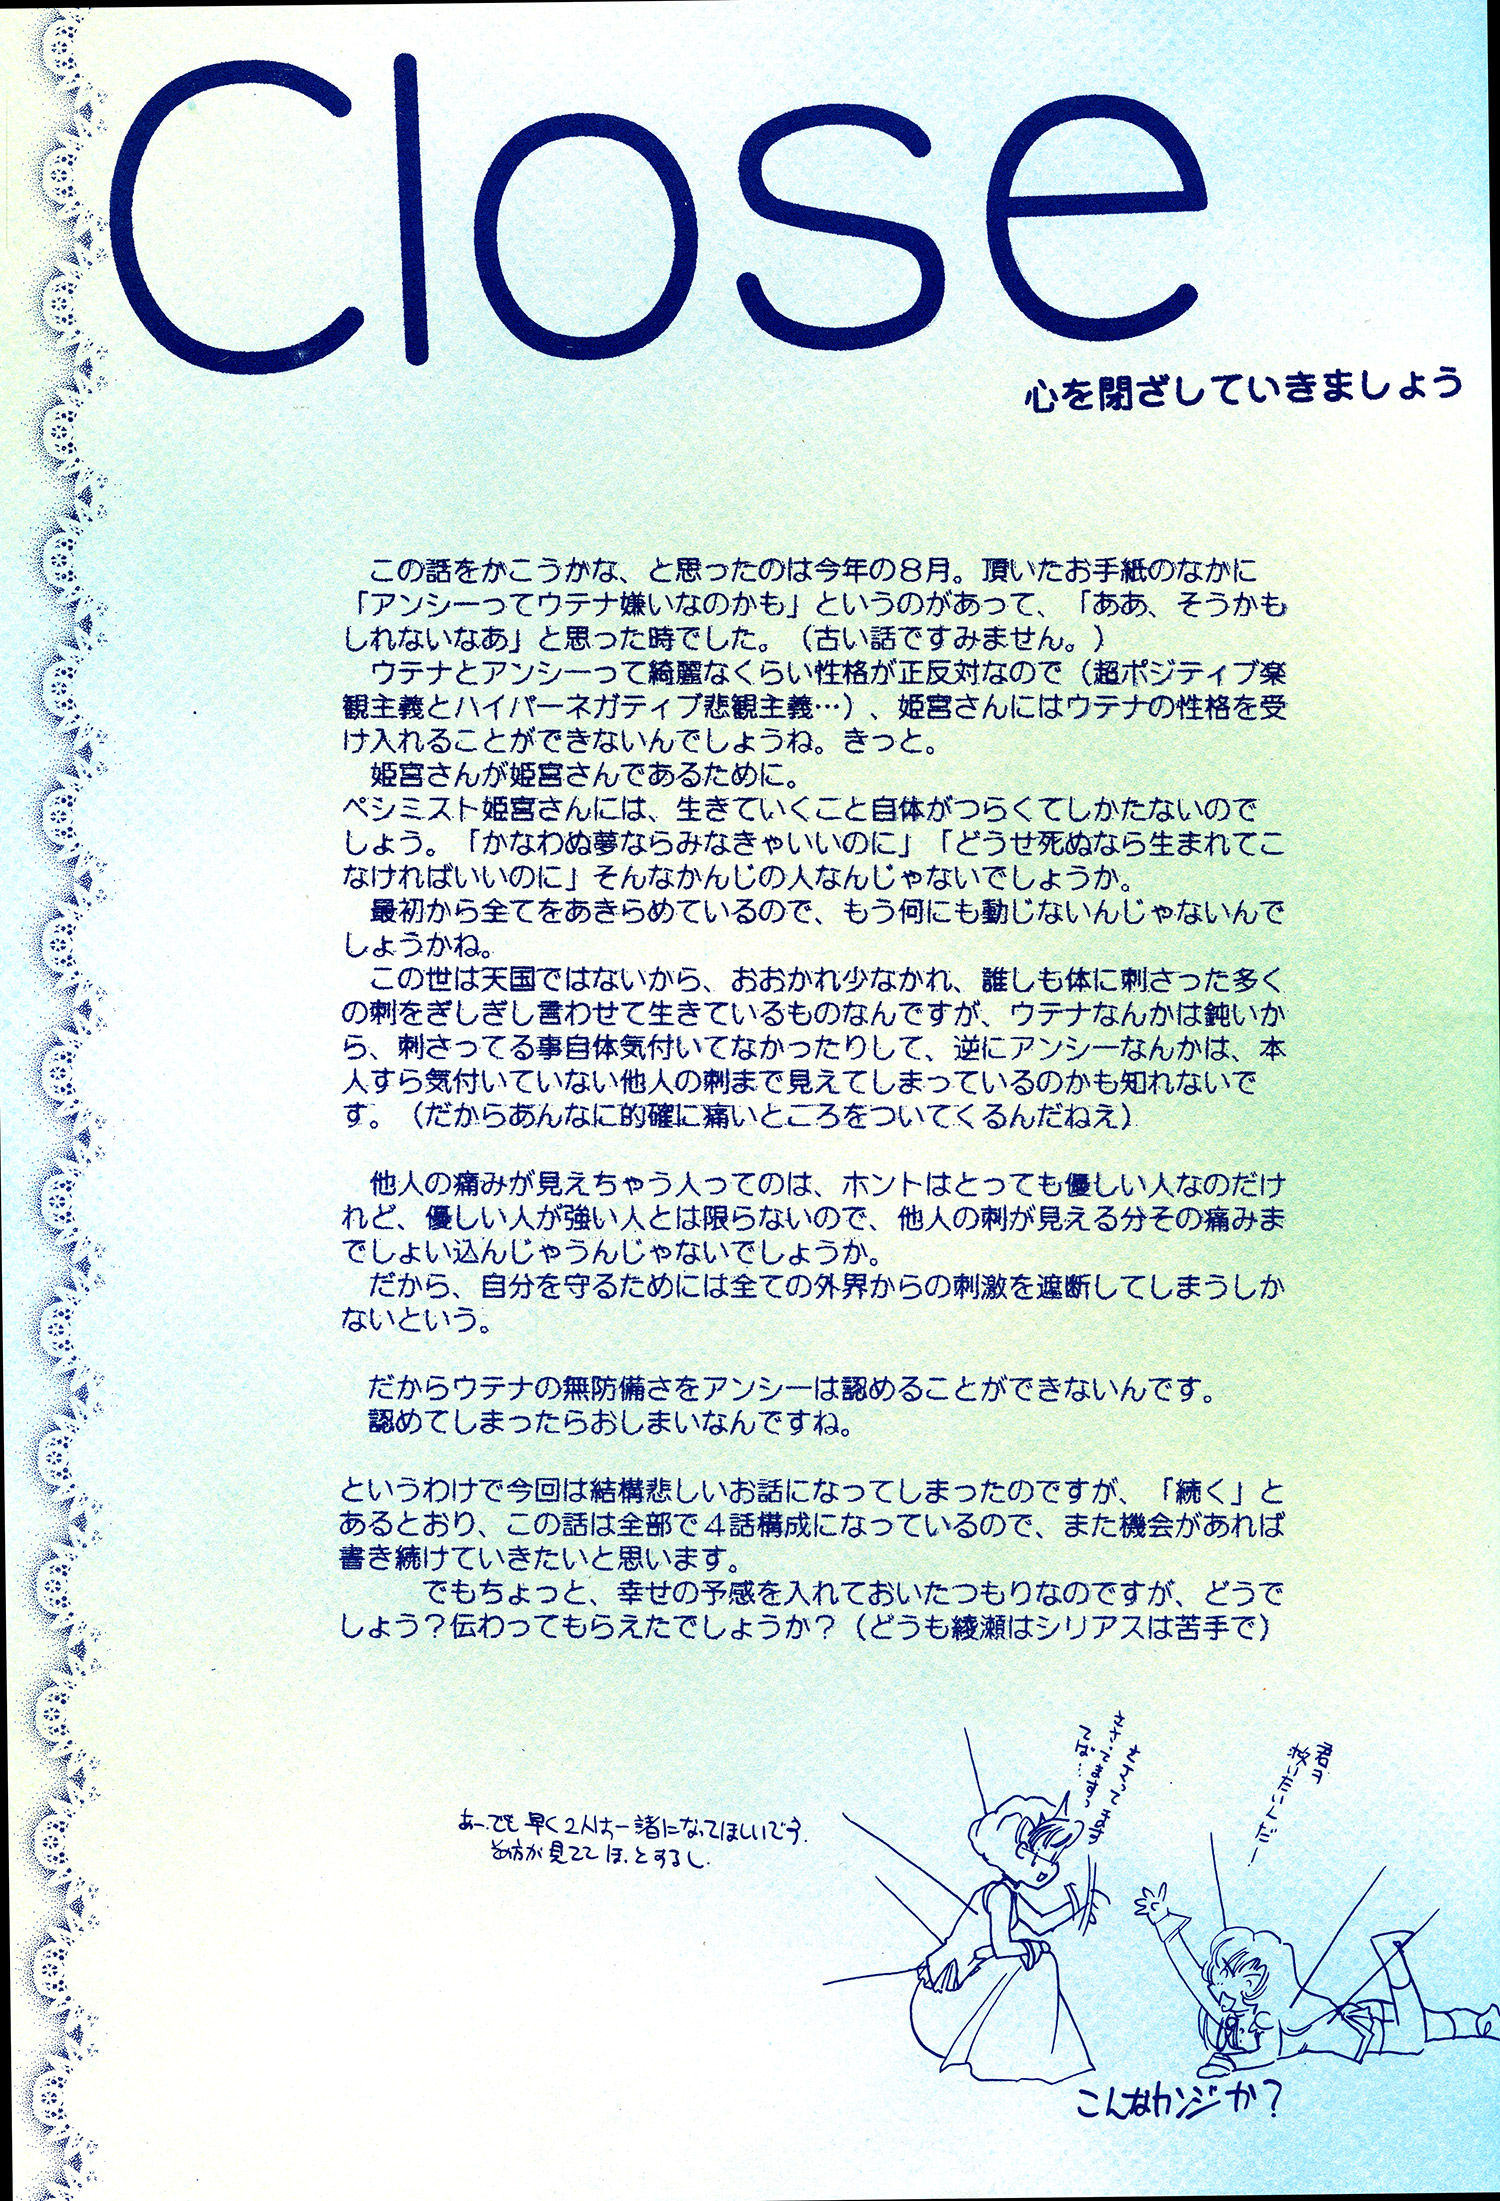 Close
心を閉ざしていきましょう
この話をかこうかな、と思ったのは今年の８月。頂いたお手紙のなかに
「アンシーってウテナ嫌いなのかも」というのがあって、「ああ、そうかも
しれないなあ」と思った時でした。（古い話ですみません。）
ウテナとアンシーって綺麗なくらい性格が正反対なので（超ポジティブ楽
観主義とハイパーネガティブ悲観主義…）、姫宮さんにはウテナの性格を受
け入れることができないんでしょうね。きっと。
姫宮さんが姫宮さんであるために。
ペシミスト姫宮さんには、生きていくこと自体がつらくてしかたないので
しょう。「かなわぬ夢ならみなきゃいいのに」「どうせ死ぬなら生まれてこ
なければいいのに」そんなかんじの人なんじゃないでしょうか。
最初から全てをあきらめているので、もう何にも動じないんじゃないんで
しょうかね。
この世は天国ではないから、おおかれ少なかれ、誰しも体に刺さった多く
の刺をぎしぎし言わせて生きているものなんですが、ウテナなんかは鈍いか
ら、刺さってる事自体気付いてなかったりして、逆にアンシーなんかは、本
人すら気付いていない他人の刺まで見えてしまっているのかも知れないで
す。（だからあんなに的確に痛いところをついてくるんだねえ）
他人の痛みが見えちゃう人ってのは、ホントはとっても優しい人なのだけ
れど、優しい人が強い人とは限らないので、他人の刺が見える分その痛みま
でしょい込んじゃうんじゃないでしょうか。
だから、自分を守るためには全ての外界からの刺激を遮断してしまうしか
ないという。
だからウテナの無防備さをアンシーは認めることができないんです。
認めてしまったらおしまいなんですね。
というわけで今回は結構悲しいお話になってしまったのですが、「続く」と
あるとおり、この話は全部で４話構成になっているので、また機会があれば
書き続けていきたいと思います。
でもちょっと、幸せの予感を入れておいたつもりなのですが、どうで
しょう？伝わってもらえたでしょうか？（どうも綾瀬はシリアスは苦手で）
あー、でも早く２人は一緒になってほしいです。
その方が見ててほっとするし。
ささってますか
ささってますっ
てば…
君を
救いたいんだー
こんなカンジか？